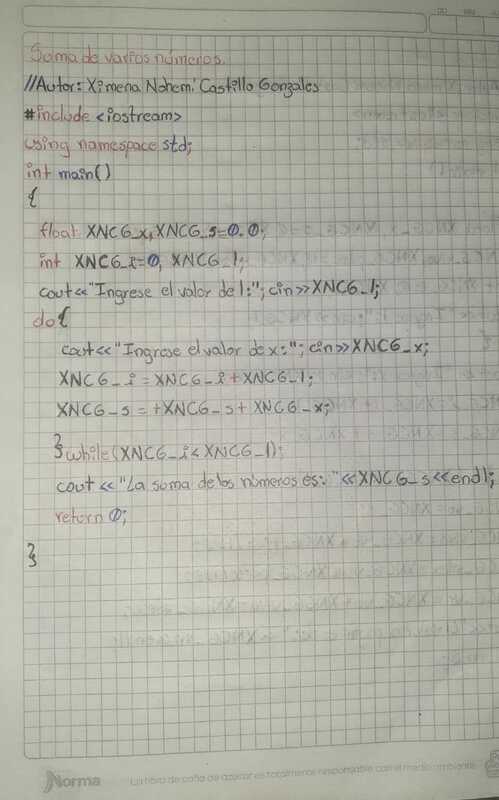 Soma de varios números.
//Autor: Ximena Nohemí Castillo Gonzales
#include <iostream>
using namespace std;
int main()
{
float XNCG_x, XNCG_s=0.0;
int XNCG_i=0, XNCG_1;
cout<<"Ingrese el valor de 1:"; cin>>XNCG_1;
do{
cout<<"Ingrese el valor de x:"; cin>>XNCG_x;
XNCG_i=XNCG_i+XNCG_1;
XNCG_s=+XNCG_s+XNCG_x;
}while(XNCG_i<XNCG_1);
cout<<"La suma de los números es: "<<XNCG_s<<endl;
return 0;
}
Norma Un libro de caña de azúcar es totalmente responsable con el medio ambiente